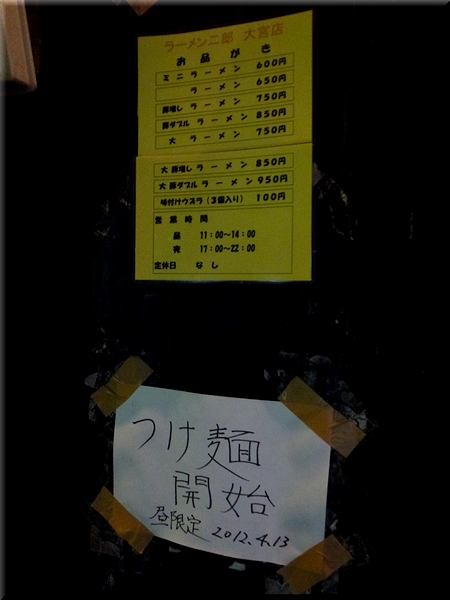 ラーメン二郎 大宮店
お品がき
ミニラーメン 600円
ラーメン 650円
豚増しラーメン 750円
豚ダブルラーメン 850円
大ラーメン 750円
大豚増しラーメン 850円
大豚ダブルラーメン 950円
味付けウズラ(3個入り) 100円
営業時間
昼 11:00〜14:00
夜 17:00〜22:00
定休日 なし
つけ麺
開始
昼限定 2012.4.13